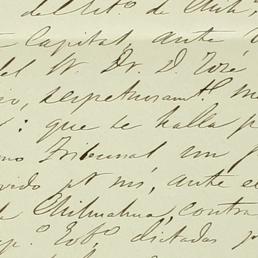 del Est.º de Chih.
Capital, ante
del Sr. Dr. D. José
respetuosam.te
: que se halla p
mo Tribunal un
vido pr. mí, ante
de Chihuahua, contra
Gob.º, dictadas p